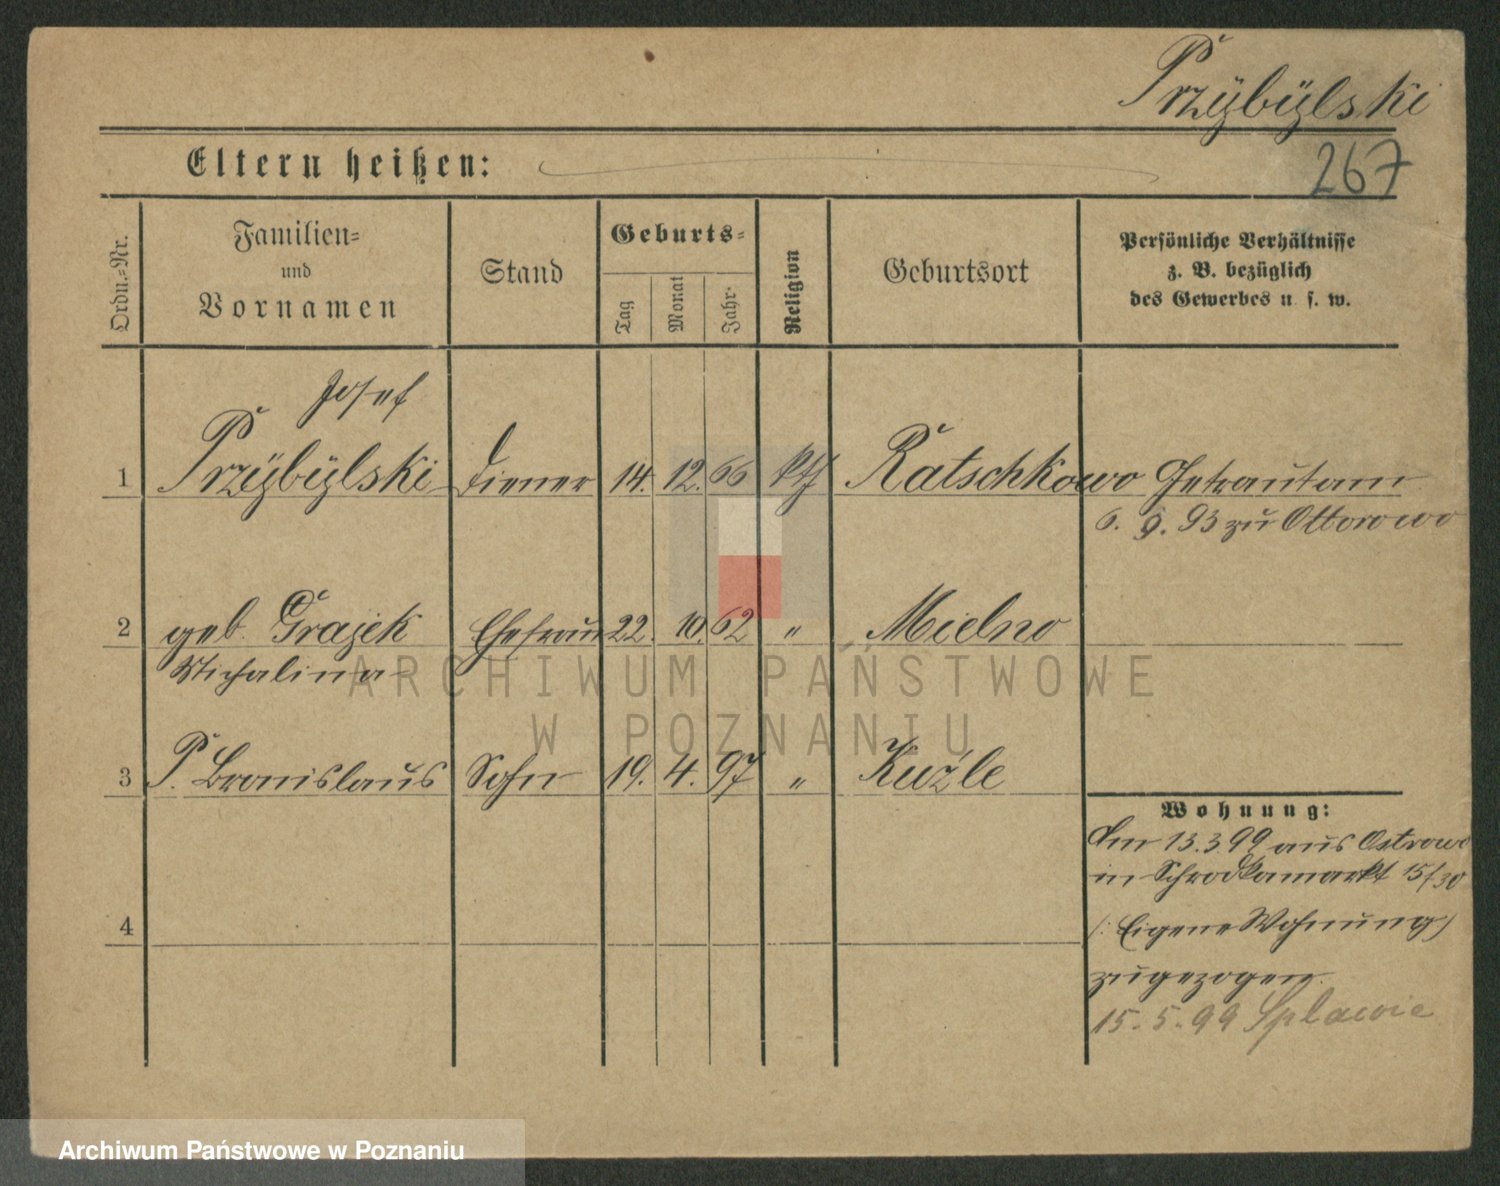 Przÿbÿlski
267
Eltern heißen:
Ordn.=Nr.
Familien=
und
Vornamen
Stand
Geburts=
Tag
Monat
Jahr.
Religion
Geburtsort
Persönliche Verhältnisse
z. B. bezüglich
des Gewerbes u. s. w.
Josef
1 Przÿbÿlski Diener 14. 12. 66 kth Ratschkowo Getraut am
6. 9. 93 zu Ottorowo
2 geb. Grajek Ehefrau 22. 10. 62 " Mielno
Michalina
3 P. Bronislaus Sohn 19. 4. 97 " Kuźle
Wohnung:
Am 13.3.99 aus Ostrowo
in Schrodkamarkt 15/30
(: Eigene Wohnung)
zugezogen.
15. 5. 99 Splawie
4
ARCHIWUM PAŃSTWOWE
W POZNANIU
Archiwum Państwowe w Poznaniu